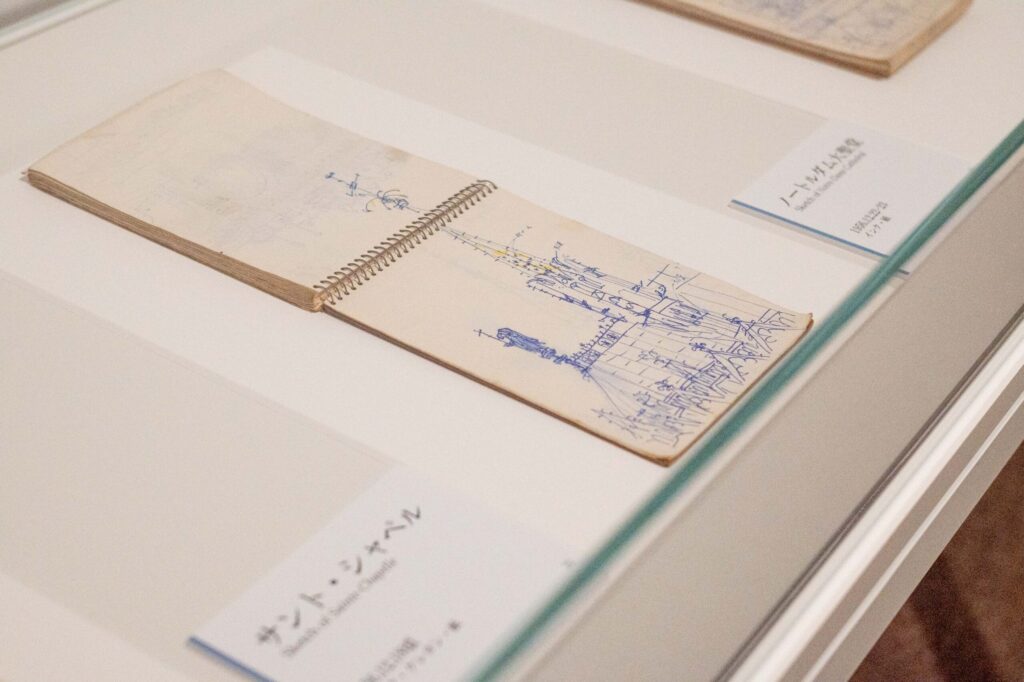 ノートルダム大聖堂
Sketch of Notre-Dame Cathedral
1956.12.22-23
インク・紙
サント・シャペル
Sketch of Sainte-Chapelle